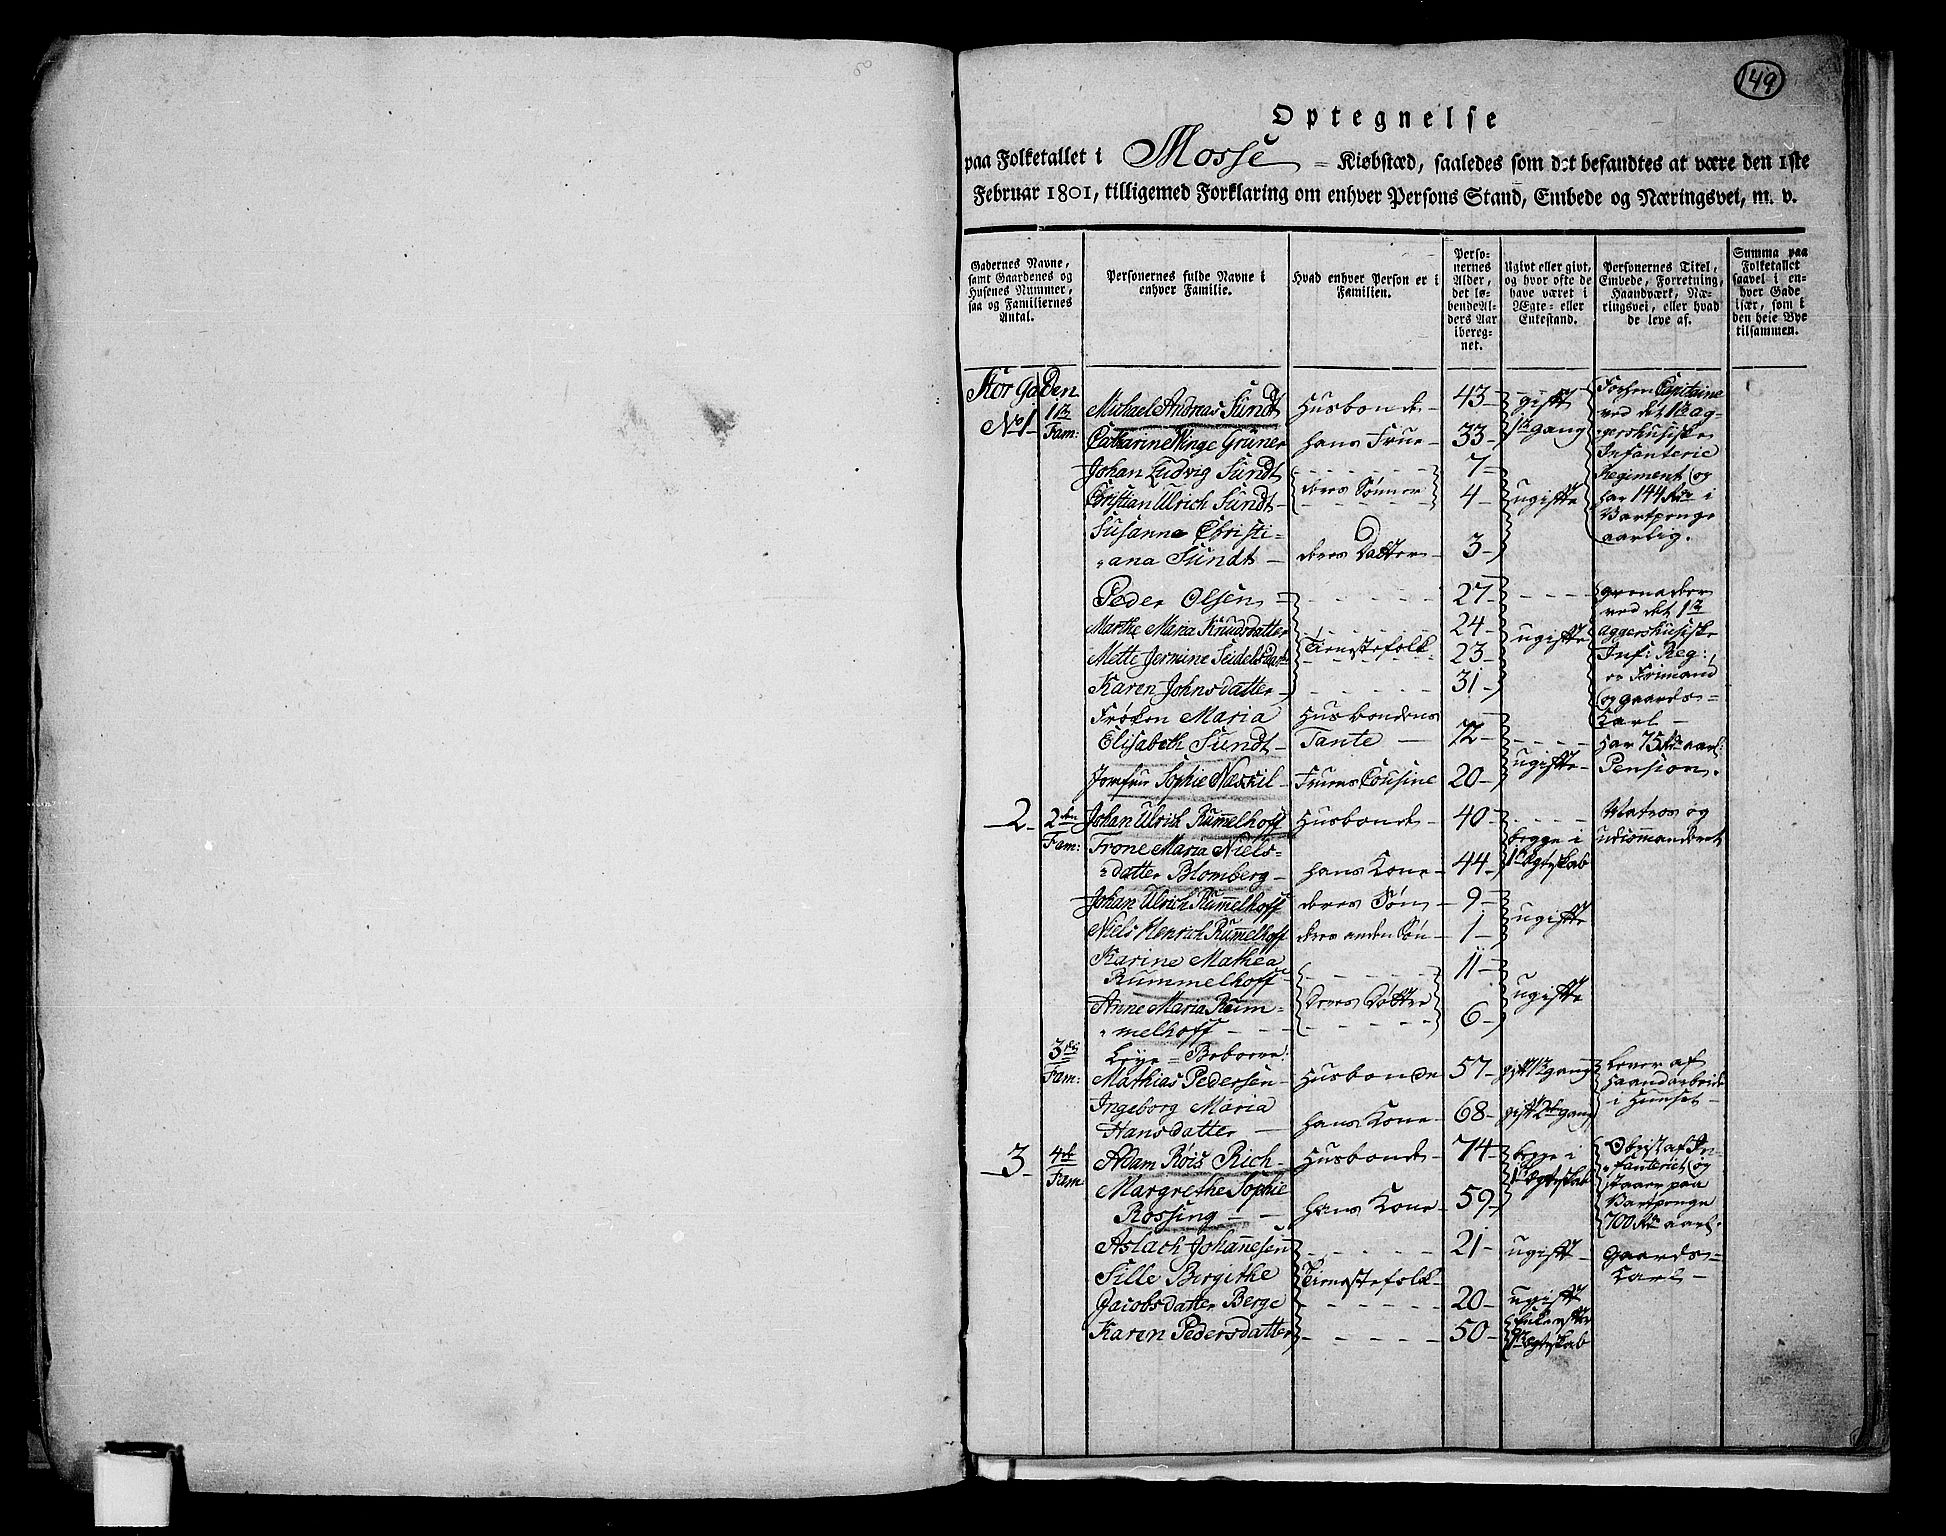 149
Optegnelse
paa Folketallet i Mosse = Kiøbstæd, saaledes som det befandtes at være den 1ste
Februar 1801, tilligemed Forklaring om enhver Persons Stand, Embede og Næringsvei, m. v.
Gadernes Navne,
samt Gaardenes og
Husenes Nummer,
saa og Familiernes
Antal.
Personernes fulde Navne i
enhver Familie.
Hvad enhver Person er i
Familien.
Perso-
nernes
Alder,
det lø-
bende Al-
ders Aar
iberegnet.
Ugivt eller givt,
og hvor ofte de
have været i
Ægte- eller
Enkestand.
Personernes Titel,
Embede, Forretning,
Haandværk, Næ-
ringsvei, eller hvad
de leve af.
Summa paa
Folketallet
saavel i en-
hver Gade
især, som i
den hele Bye
tilsammen.
Storgaden
No 1 1ste Fam: Michael Andreas Sundt Husbonde 43 gift 1te gang Forhen Capitaine
ved det 1te ag-
gershusiske
Infanterie
Regiment, og
har 144 Rdr i
Vartpenge
aarlig.
Catharine Winge Grüner hans Frue 33
Johan Ludvig Sundt deres Sønner 7 ugifte
Christian Ulrich Sundt 4
Susanna Christi-
ana Sundt deres Datter 3
Peder Olsen 27 Grenadeer
ved det 1te
aggershusiske
Inf: Reg:,
er Frimand
og gaards=
Karl
Marthe Maria Knudsdatter Tienestefolk 24 ugifte
Mette Jermine Seidelsdatt 23
Karen Johnsdatter 31
Frøken Maria Husbondens
Elisabeth Sundt Tante 72 ugifte har 75 Rdr aarl:
Pension.
Jomfrue Sophie Næskil Fruens Cousine 20
2 2den Fam: Johan Ulrich Rummelhoff Husbonde 40 begge i 1te Ægteskab Matros og
udcommanderet
Trone Maria Niels-
datter Blomberg hans Kone 44
Johan Ulrich Rummelhoff deres Søn 9 ugifte
Niels Henrich Rummelhoff deres anden Søn 1
Karine Mathea
Rummelhoff deres Døttre 11 ugifte
Anne Maria Rum-
melhoff 6
3die Fam: Leye=Beboere:
Mathias Pedersen Husbonde 57 gift 1te gang Lever af
Haandarbeide
i Huuset
Ingeborg Maria
Hansdatter hans Kone 68 gift 2den gang
3 4de Fam Adam Røis Rich Husbonde 74 begge i 1te Ægteskab Obrist af In-
fanteriet, og
staaer paa
Vartpenge
700 Rdr aarl:
Margrethe Sophie
Rossing hans Kone 59
Aslach Johannesen 21 ugift Gaards=
Karl
Sille Bergithe Tienestefolk
Jacobsdatter Berge 20 ugift
Karen Pedersdatter 50 Enke efter 1te Ægteskab